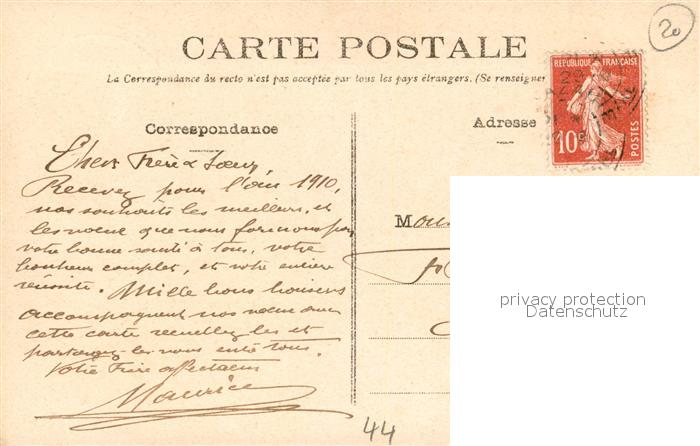 20
CARTE POSTALE
La Correspondance du recto n'est pas acceptée par tous les pays étrangers. (Se renseigner
REPUBLIQUE FRANÇAISE
10
POSTES
Correspondance
Adresse
Chers Frère & Sœur,
Recevez pour l'an 1910,
nos souhaits les meilleurs, et
les vœux que nous formons pour
votre bonne santé à tous, votre
bonheur complet, et votre entière
réussite. Mille bons baisers
accompagnent nos vœux dans
cette carte recueillez les et
partagez-les-vous entre tous.
Votre Frère affectueux
Maurice
Mous
privacy protection
Datenschutz
44